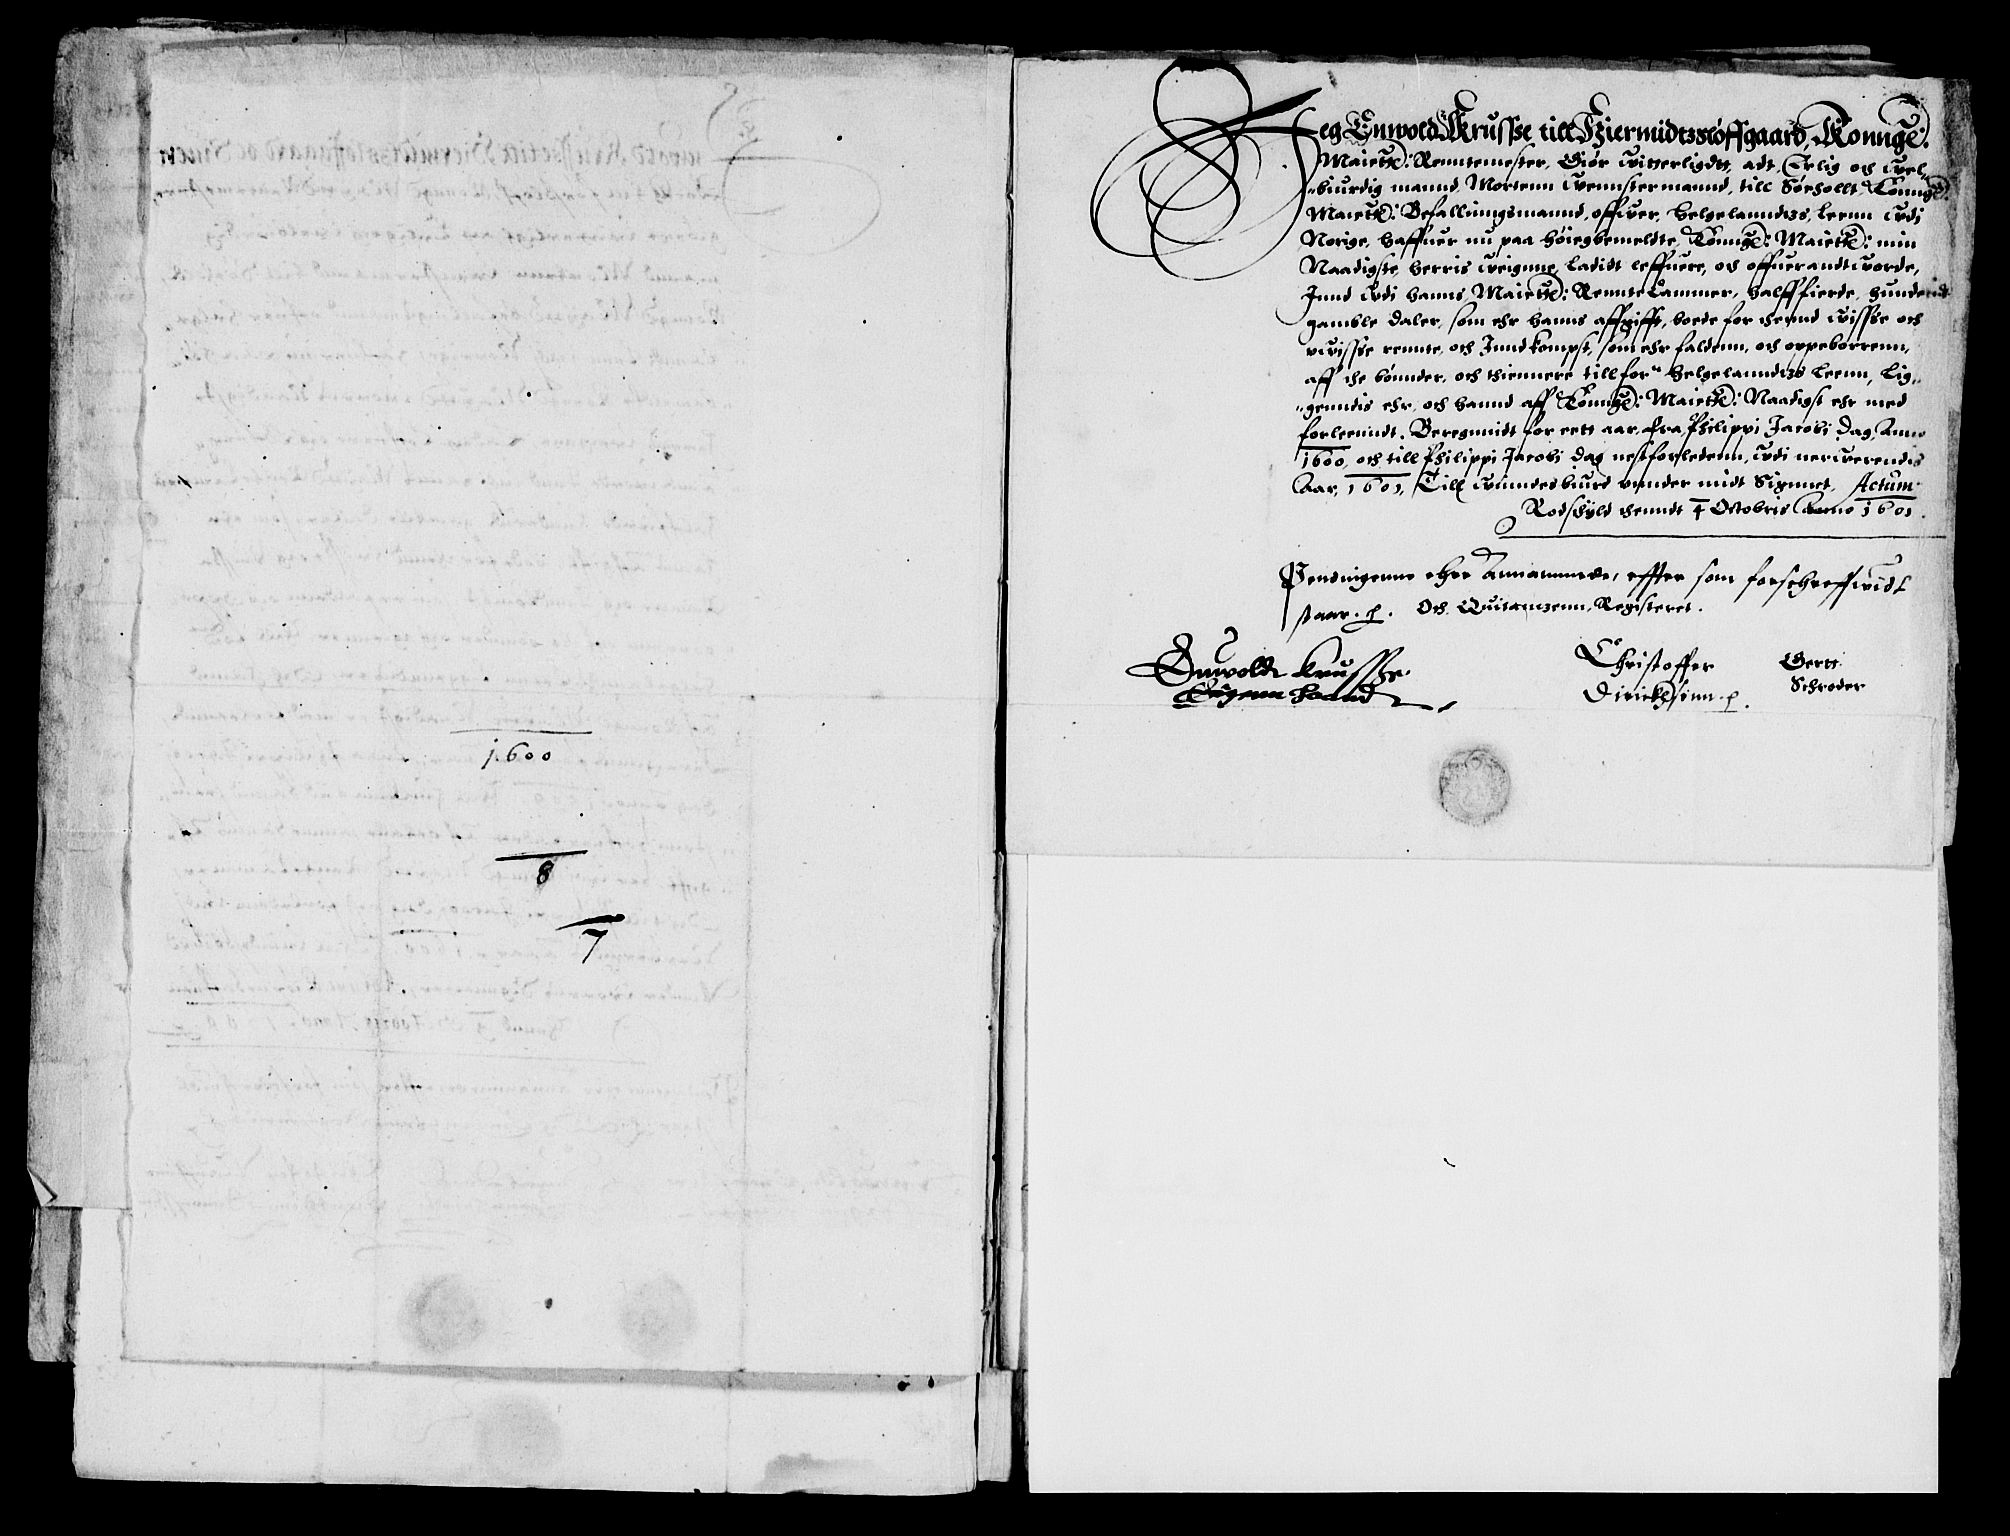 1600
8
7
Jeg Enwold Krusse till Hiermidtzsløffgaard, Konnge:
Maiettz: Renntemester, Giør witterligdtt, adt, Erlig och wel-
-biurdig mannd, Mortenn Wennstermannd, till Søehollt, Konnge:
Maiettz: Befallingsmannd, offwer, Helgelanndtzs, Leenn wdi
Norige, haffuer nu paa høiegbemeldte, Konnge: Maiettz: min
Naadigste, herris weignne, ladidt leffuere, och offuerandtworde,
Innd wdi hanns, Maiettz: Rennte Cammer, halfffierde, hundredt
gamble daler, som ehr hanns affgifft, boede for thennd wissse och
wwissse rennte, och Inndkompst, som ehr faldenn, och oppeborrenn,
aff the bønnder, och thiennere till for: Helgelanndtzs Leenn, lig-
-genndis ehr, och hannd aff Konnge: Maiettz: Naadigst ehr med
forleenndt. Beregnnidt for eett aar, fra Philippi Jacobi Dag, Anno
1600, och till Philippi Jacobi Dag nestforledenn, wdi nerwerendis
Aar, 1601, Till winndesbiurd wnnder midt Signnet, Actum
Rodschyld thenndt 4 Octobris Anno 1601.
Penndingenne ehre Annammede, effter som forschreffwidt
staar. Och Quitantzenn, Registeret.
Enwoldt Krussse
Eigenn haand
Christoffer
Dirichsønn
Gertt
Schrøder